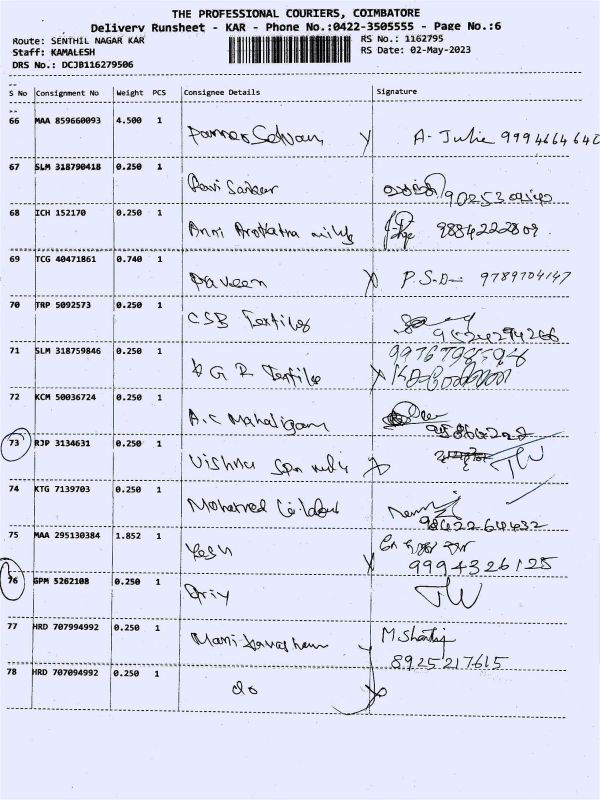 THE PROFESSIONAL COURIERS, COIMBATORE
Delivery Runsheet - KAR - Phone No.:0422-3505555 - Page No.:6
Route: SENTHIL NAGAR KAR
RS No.: 1162795
Staff: KAMALESH
RS Date: 02-May-2023
DRS No.: DCJB116279506
S No Consignment No Weight PCS Consignee Details Signature
66 MAA 859660093 4.500 1
A. Julie 9994664640
67 SLM 318790418 0.250 1
Ravi Sankar
68 ICH 152170 0.250 1
9884222809
69 TCG 40471861 0.740 1
Paveen P.S.D 9789704147
70 TRP 5092573 0.250 1
CSB Textiles
9524294266
71 SLM 318759846 0.250 1
G R Textiles
72 KCM 50036724 0.250 1
A.C Mahaligam
73 RJP 3134631 0.250 1
Vishnu Spn mills TW
74 KTG 7139703 0.250 1
Mohamed
9842264432
75 MAA 295130384 1.852 1
Yesu
9994326125
76 GPM 5262108 0.250 1
Priy TW
77 HRD 707994992 0.250 1
M. Shanthi
8925217615
78 HRD 707094992 0.250 1
do